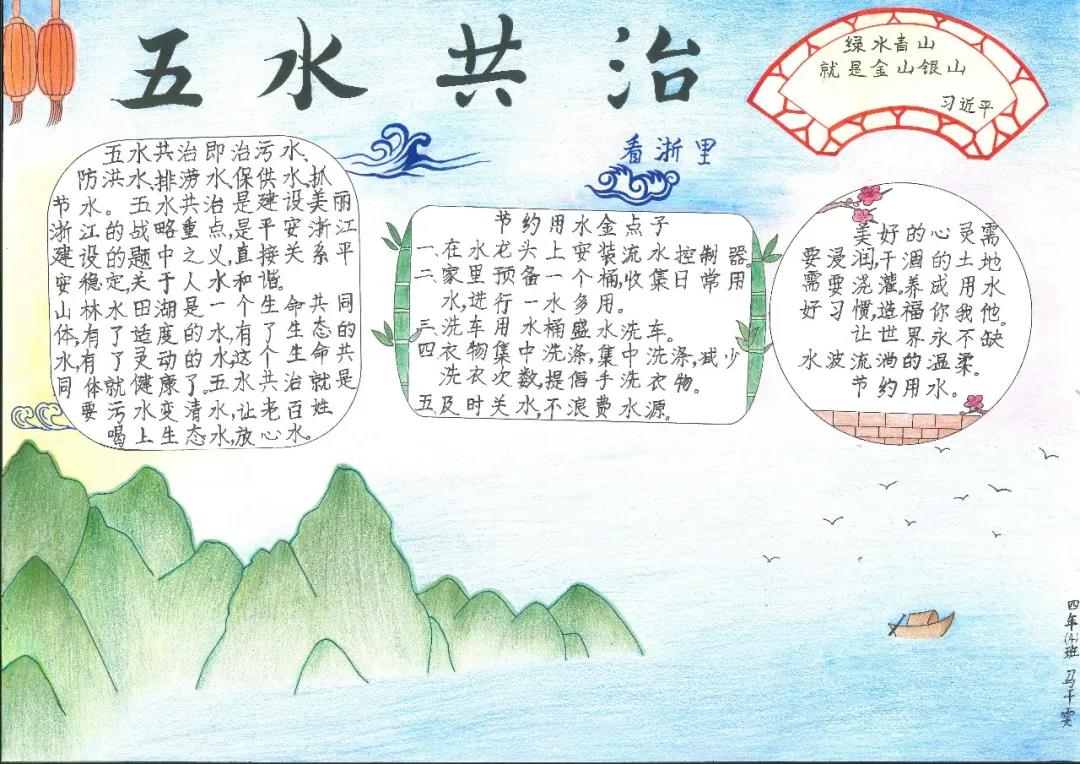 五水共治
看浙里
绿水青山
就是金山银山
习近平
五水共治即治污水、
防洪水、排涝水、保供水、抓
节水。五水共治是建设美丽
浙江的战略重点,是平安浙江
建设的题中之义,直接关系平
安稳定关于人水和谐。
山林水田湖是一个生命共同
体,有了适度的水,有了生态的
水,有了灵动的水,这个生命共
同体就健康了。五水共治就是
要污水变清水,让老百姓
喝上生态水,放心水。
节约用水金点子
一、在水龙头上安装流水控制器。
二家里预备一个桶,收集日常用
水,进行一水多用。
三、洗车用水桶盛水洗车。
四衣物集中洗涤,集中洗涤,减少
洗衣次数,提倡手洗衣物。
五及时关水,不浪费水源。
美好的心灵需
要浸润,干涸的土地
需要浇灌。养成用水
好习惯,造福你我他。
让世界永不缺
水波流淌的温柔。
节约用水。
四年(4)班 马千雯